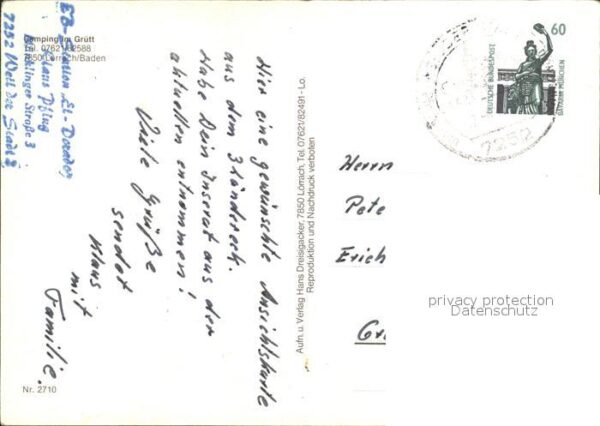 Camping am Grütt
Tel. 07621/82588
7850 Lörrach/Baden
EB-Station El-Dorado
Klaus Pflug
Straße 3
7252 Weil der Stadt 2
Hier eine gewünschte Ansichtskarte
aus dem 3Ländereck.
Habe Dein Inserat aus der
aktuellen entnommen!
Viele Grüße
sendet
Klaus
mit
Familie.
Nr. 2710
Aufn. u. Verlag Hans Dreisigacker, 7850 Lörrach, Tel. 07621/82491 - Lo.
Reproduktion und Nachdruck verboten
60
DEUTSCHE BUNDESPOST
BAVARIA MÜNCHEN
7252
Herrn
Pete
Erich
Gr
privacy protection
Datenschutz